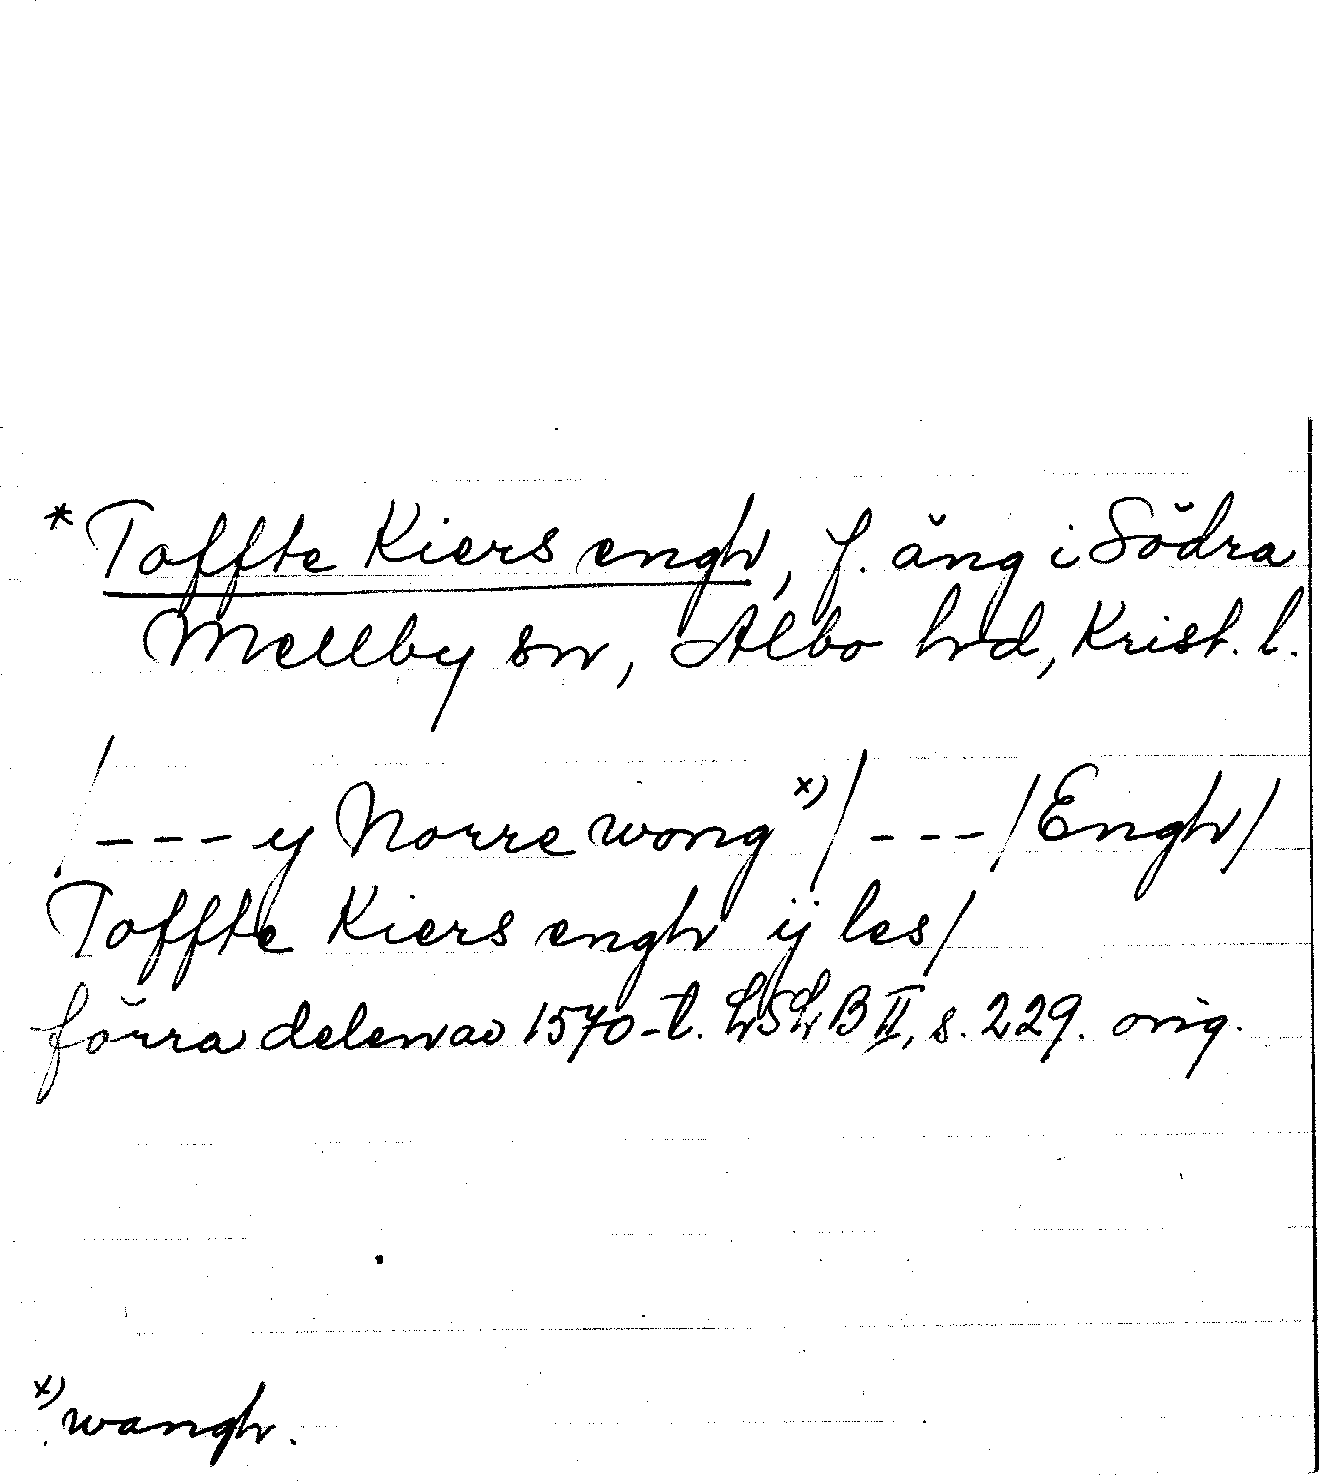 * Toffte Kiers engh, f. äng i Södra
Mellby sn, Albo hd, Krist. l.
/--- y Norre wong x)/---/Engh/
Toffte Kiers engh ij les/
förra delen av 1570-t. LSLB II, s. 229. orig.
x) wangh.